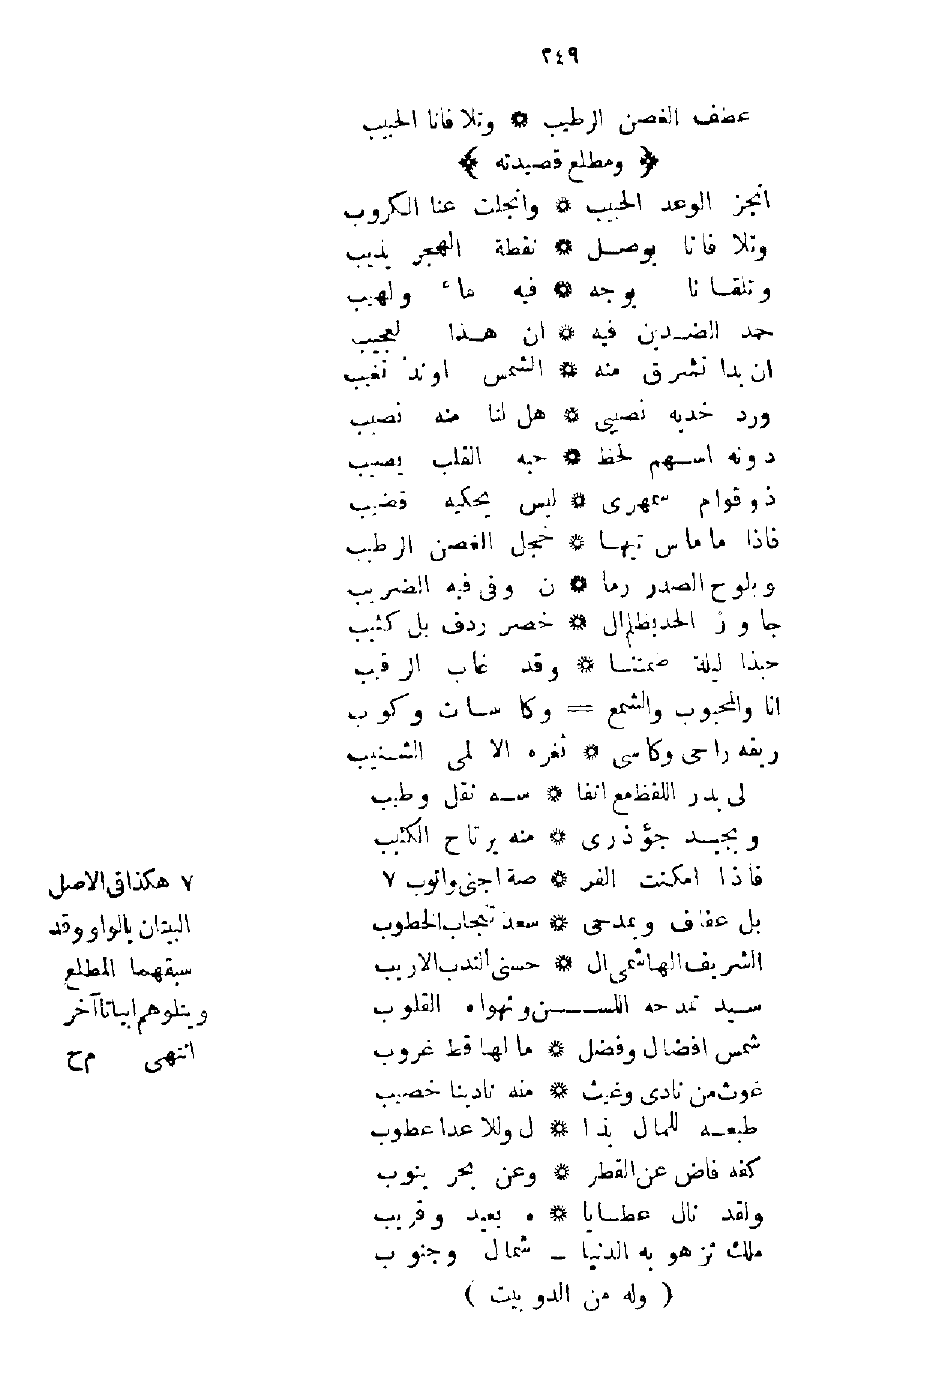 ٢٤٩
عطف الغصن الرطيب * وتلافانا الحبيب
﴿ ومطلع قصيدته ﴾
انجز الوعد الحبيب * وانجلت عنا الكروب
وتلافانا بوصل * نقطة الهجر يذيب
وتلقانا بوجه * فيه ماء ولهيب
حمد الضدين فيه * ان هذا لعجيب
ان بدا تشرق منه * الشمس اوند تغيب
ورد خديه نصيبى * هل لنا منه نصيب
دونه اسهم لحظ * حبه القلب يصيب
ذو قوام سمهرى * ليس يحكيه قضيب
فاذا ماماس تيها * خجل الغصن الرطيب
ويلوح الصدر رما * ن وفى فيه الضريب
جاوز الحد بظلم ال * خصر ردف بل كثيب
حبذا ليلة ضمتنا * وقد غاب الرقيب
انا والمحبوب والشمع = وكاسات وكوب
ريقه راحى وكاسى * ثغره الالمى الشنيب
لى بدر اللفظ مع انفا * سه نقل وطيب
وبجيد جؤذرى * منه يرتاح الكئيب
فاذا امكنت الفر * صة اجنى واتوب ٧
بل عفاف وبمدحى * سعد تنجاب الخطوب
الشريف الهاشمى ال * حسنى الندب الاريب
سيد تمدحه اللسن وتهواه القلوب
شمس افضال وفضل * مالها قط غروب
غوث من نادى وغيث * منه نادينا خصيب
طبعه للمال بذا * ل وللاعدا عطوب
كفه فاض عن القطر * وعن بحر ينوب
ولقد نال عطايا * ه بعيد وقريب
ملك تزهو به الدنيا ـ شمال وجنوب
( وله من الدوبيت )
٧ هكذا فى الاصل
البيتان بالواو وقد
سبقهما المطلع
ويتلوهم ابياتا آخر
انتهى م ح